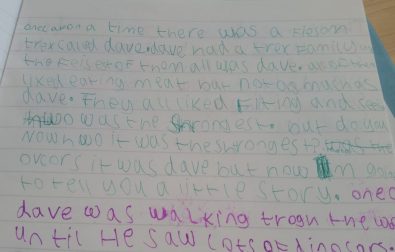 onec apon a time there was a fiesom
trex caled dave. dave had a trex Family
the feisetof them all was dave. all of them
liked eating meat but not as much as
dave. They all liked FiTing and see
who was the Shrongest. but do you
Now hwo it was the shrongest?
ovcors it was dave but now I'm going
to tell you a little story. onec
dave was walking trogh the
until He saw lots of dinosors.